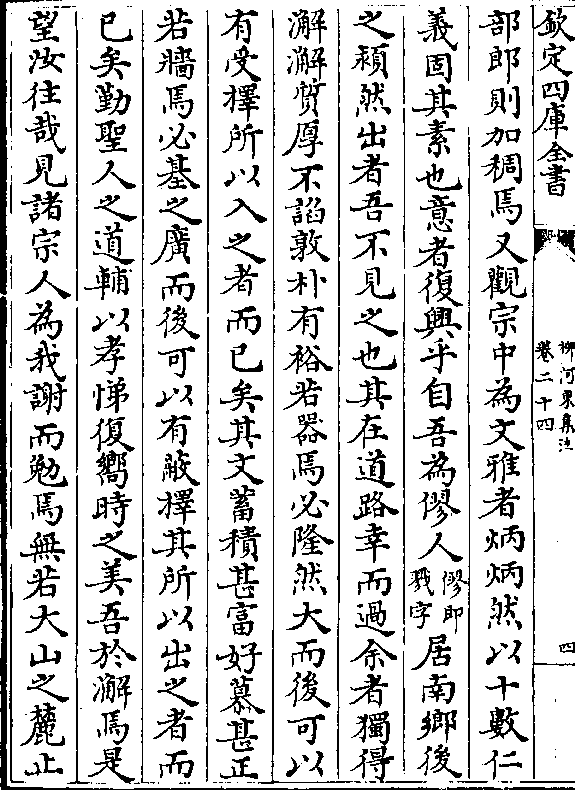 欽定四庫全書
柳河東集注
卷二十四
四
部郎則加稠焉又觀宗中為文雅者炳炳然以十數仁
義固其素也意者復興乎自吾為僇人僇即戮字居南鄉後
之頴然出者吾不見之也其在道路幸而過余者獨得
澥澥質厚不諂敦朴有裕若器焉必隆然大而後可以
有受擇所以入之者而已矣其文蓄積甚富好慕甚正
若牆焉必基之廣而後可以有蔽擇其所以出之者而
已矣勤聖人之道輔以孝悌復嚮時之美吾於澥焉是
望汝往哉見諸宗人為我謝而勉焉無若大山之麓止